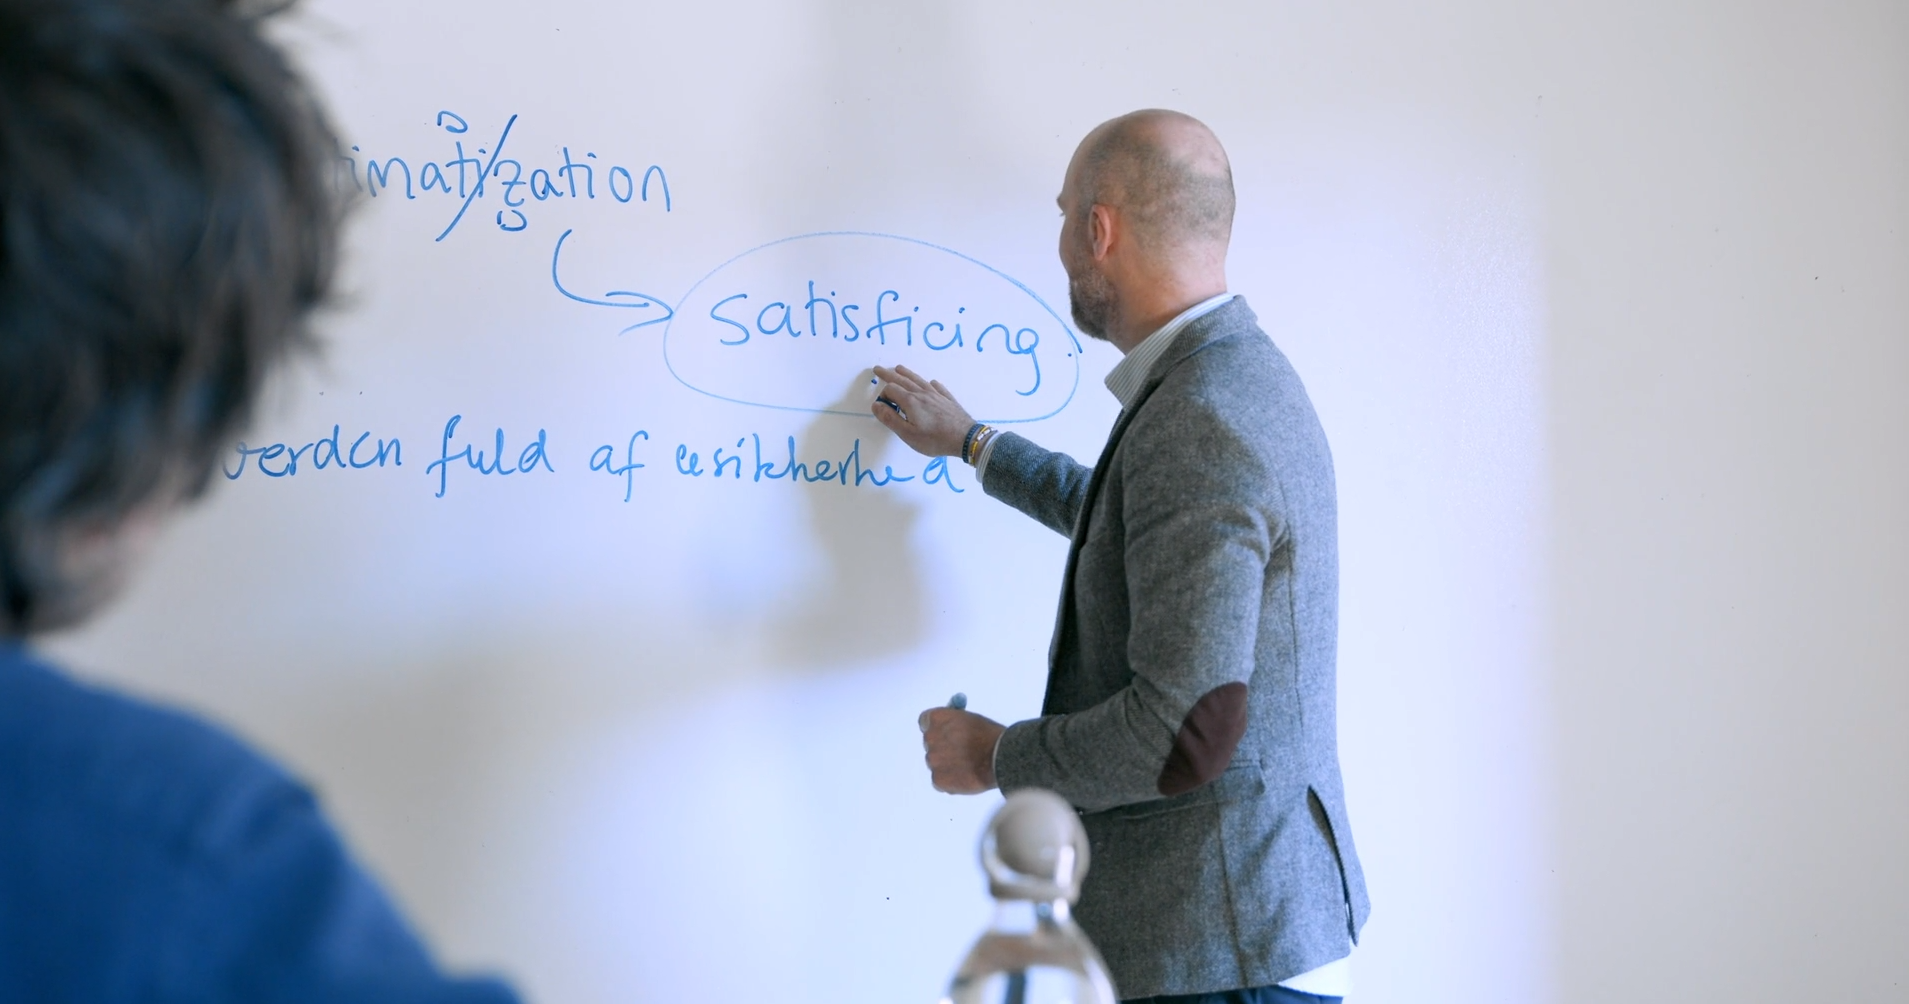 imatization
satisficing
verden fuld af usikkerhed